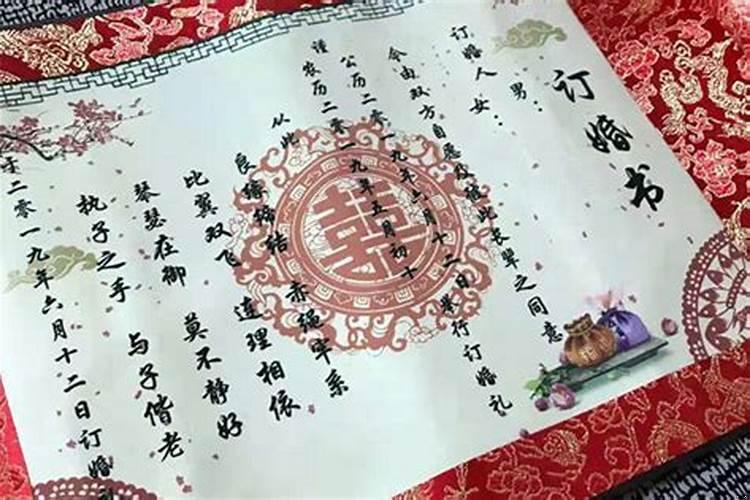 订婚书
男：
订婚人 女：
今由双方自愿及彼此长辈之同意
谨
公历二零一九年六月十二日举行订婚礼
农历二零一九年五月初十
从此
良缘缔结 赤绳牢系
比翼双飞 连理相依
琴瑟在御 莫不静好
执子之手 与子偕老
于二零一九年六月十二日订婚
囍